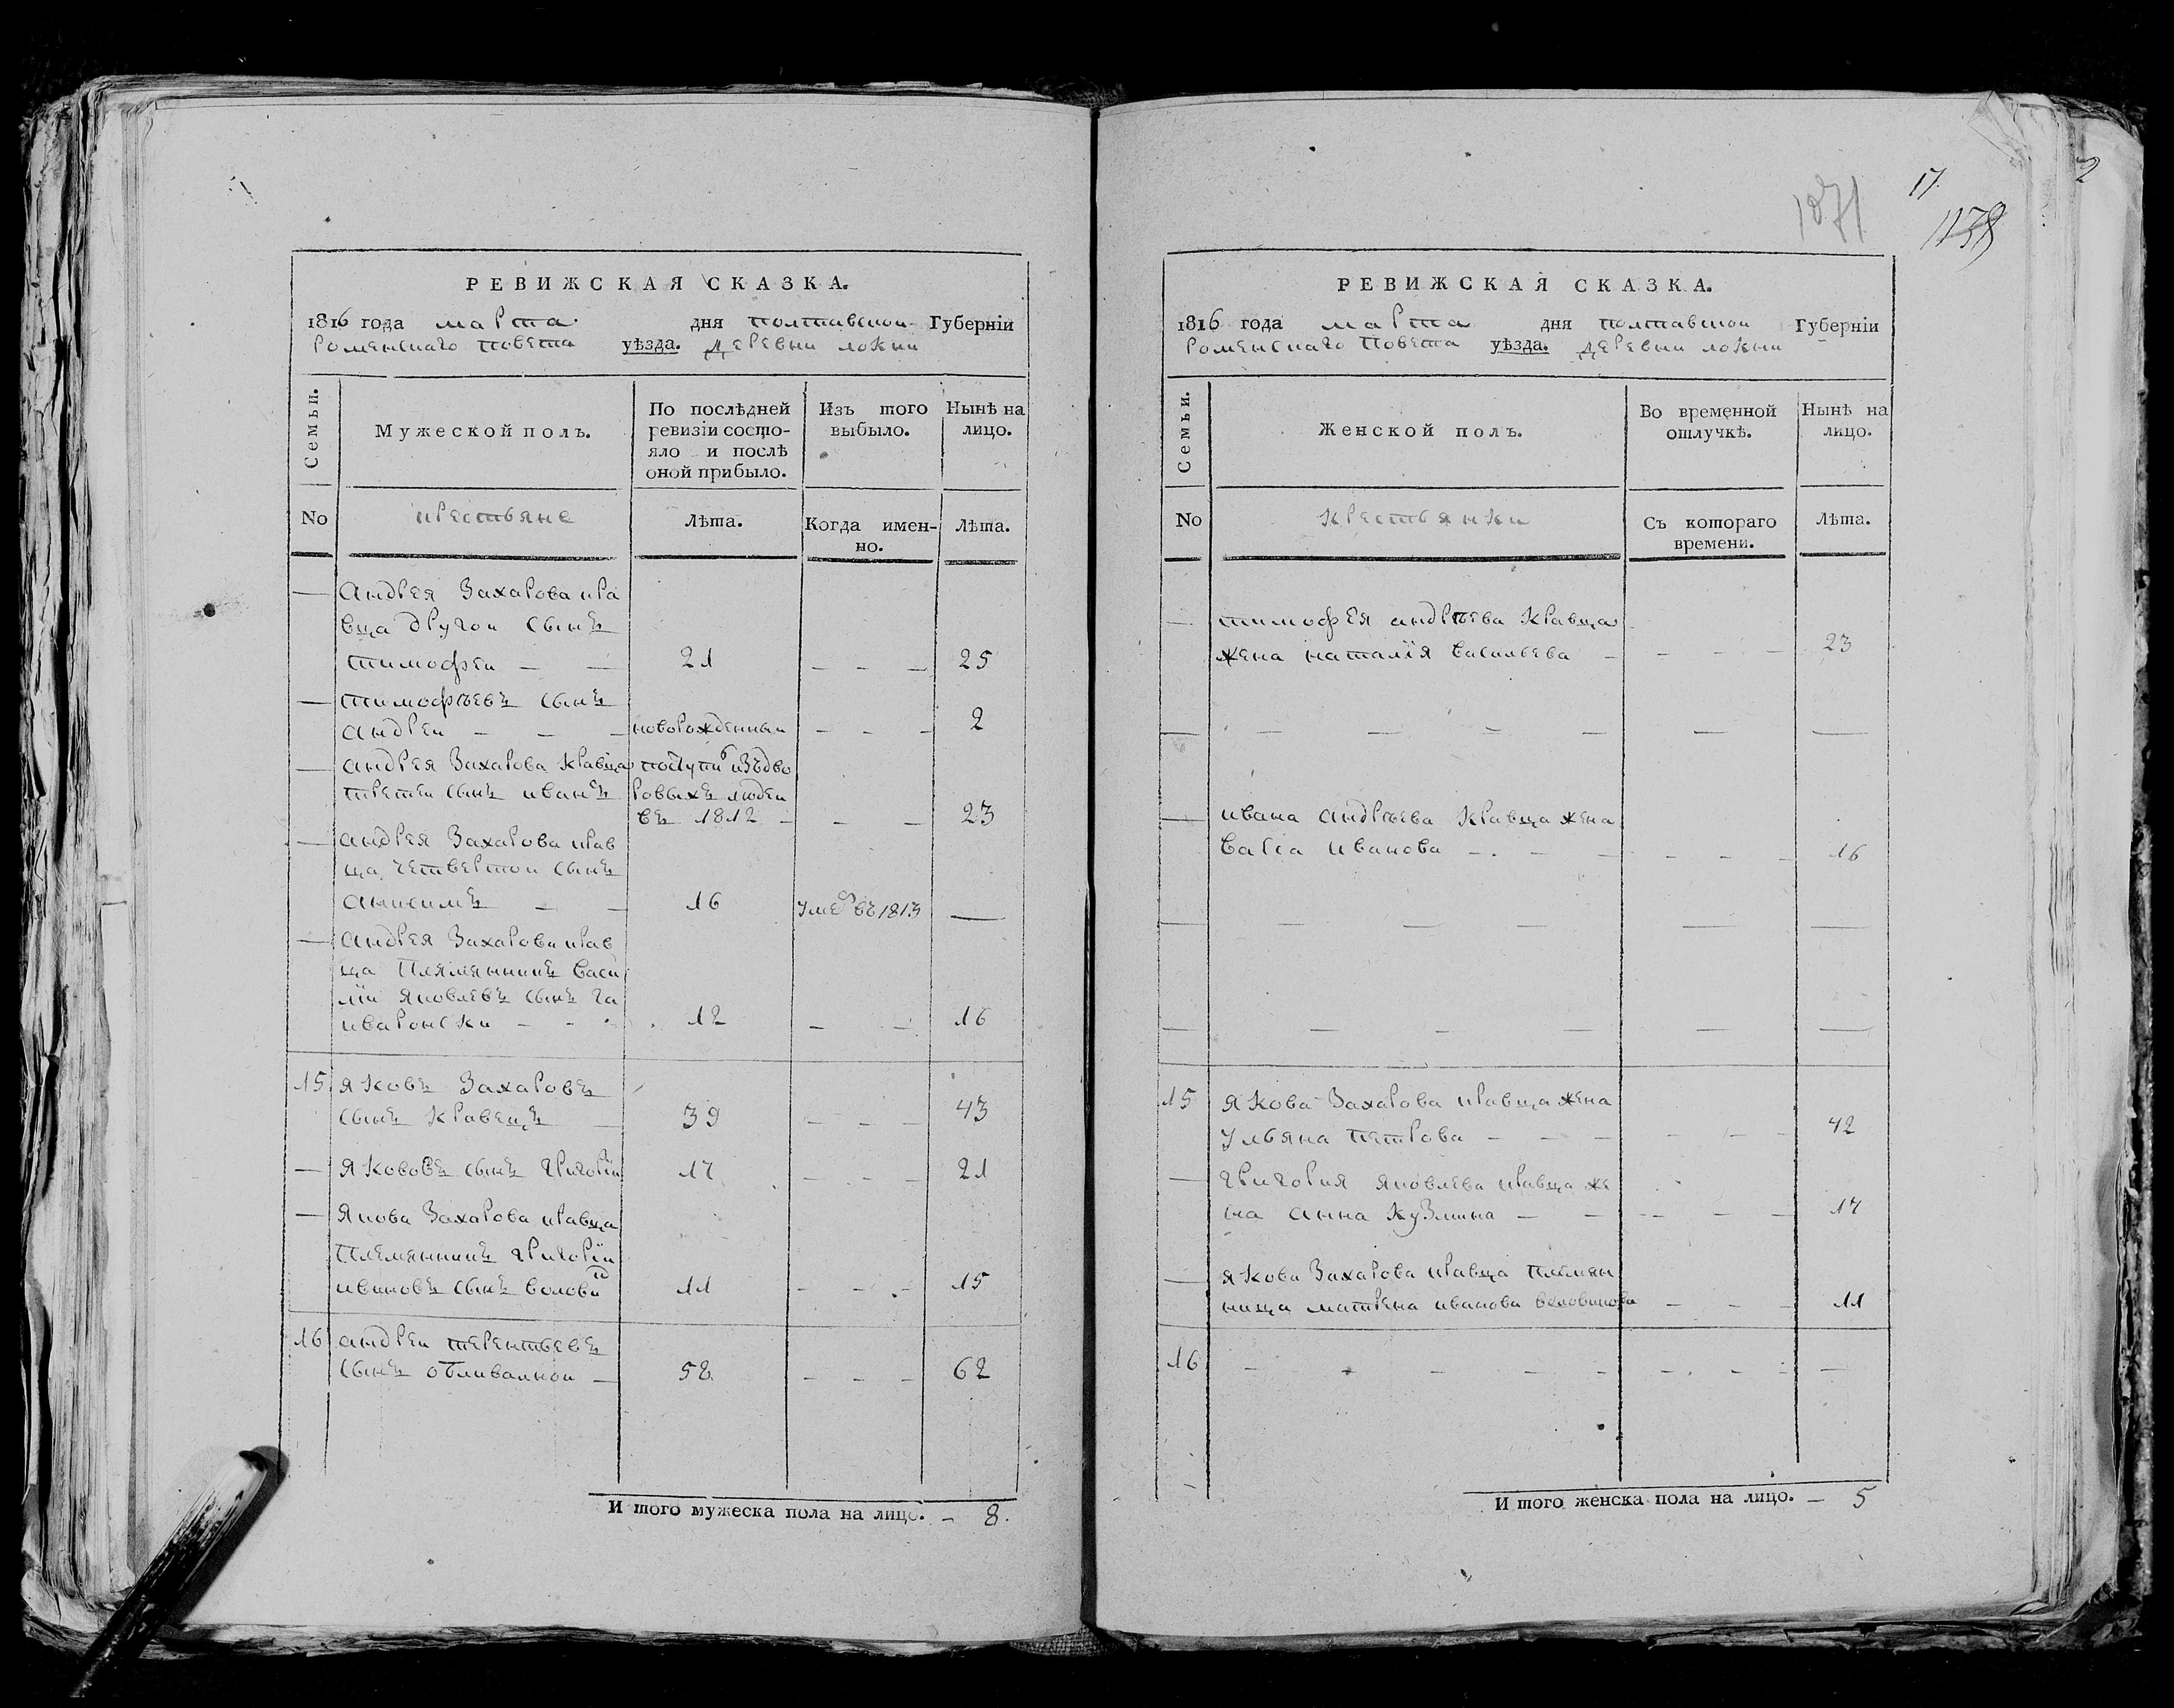 РЕВИЖСКАЯ СКАЗКА.
1816 года марта дня полтавской Губерніи
роменскаго повета уѣзда. деревни локни
Семьи.
Мужеской полъ.
По послѣдней
ревизіи состо-
яло и послѣ
оной прибыло.
Изъ того
выбыло.
Нынѣ на
лицо.
No
крестьяне
Лѣта.
Когда имен-
но.
Лѣта.
— андрея Захарова кра
вца другои сынъ
тимофеи — — 21 — — — 25
— тимофѣевъ сынъ
андреи — — — новорожденныи — — — 2
— андрея Захарова кравца поступи изъ дво
третеи сынъ иванъ ровыхъ людеи
въ 1812 — — — 23
— андрея Захарова крав
ца, четвертои сынъ
анисимъ — — 16 умер въ 1813 —
— андрея Захарова крав
ца племянникъ васи
лїи яковлевъ сынъ га
иваронски — — 12 — — 16
15 яковъ Захаровъ
сынъ кравецъ — 39 — — — 43
— якововъ сынъ григорїи 17 — — — 21
— якова Захарова кравца
племянникъ григорїи
ивановъ сынъ воловик 11 — — — 15
16 андреи терентьевъ
сынъ обливаннои — 58 — — — 62
И того мужеска пола на лицо. — 8.
17
1138
1071
2
РЕВИЖСКАЯ СКАЗКА.
1816 года марта дня полтавскои Губерніи
роменскаго повета уѣзда. деревни локни
Семьи.
Женской полъ.
Во временной
отлучкѣ.
Нынѣ на
лицо.
No
крестьянки
Съ котораго
времени.
Лѣта.
— тимофея андрѣева кравца
жена наталїя васильева — — — — 23
— — — — — — —
— ивана андрѣева кравца жена
варка иванова — — — — — — 16
— — — — — —
— — — — — —
15 якова Захарова кравца жена
ульяна петрова — — — — — — 42
— григория яковлева кравца же
на анна кузмина — — — — — 17
— якова Захарова кравца племян
ница матрена иванова воловикова — — — 11
16 — — — — — — — — —
И того женска пола на лицо. — 5